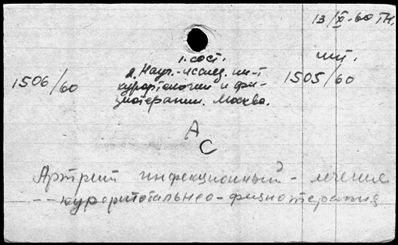 13/X-60 ТН.
1. сост.
2. Науч.-исслед. ин-т
курортологии и физиотерапии. Москва.
1506/60
шт.
1505/60
А
С
Артрит инфекционный - лечение
-- курортобально-физиотерапия